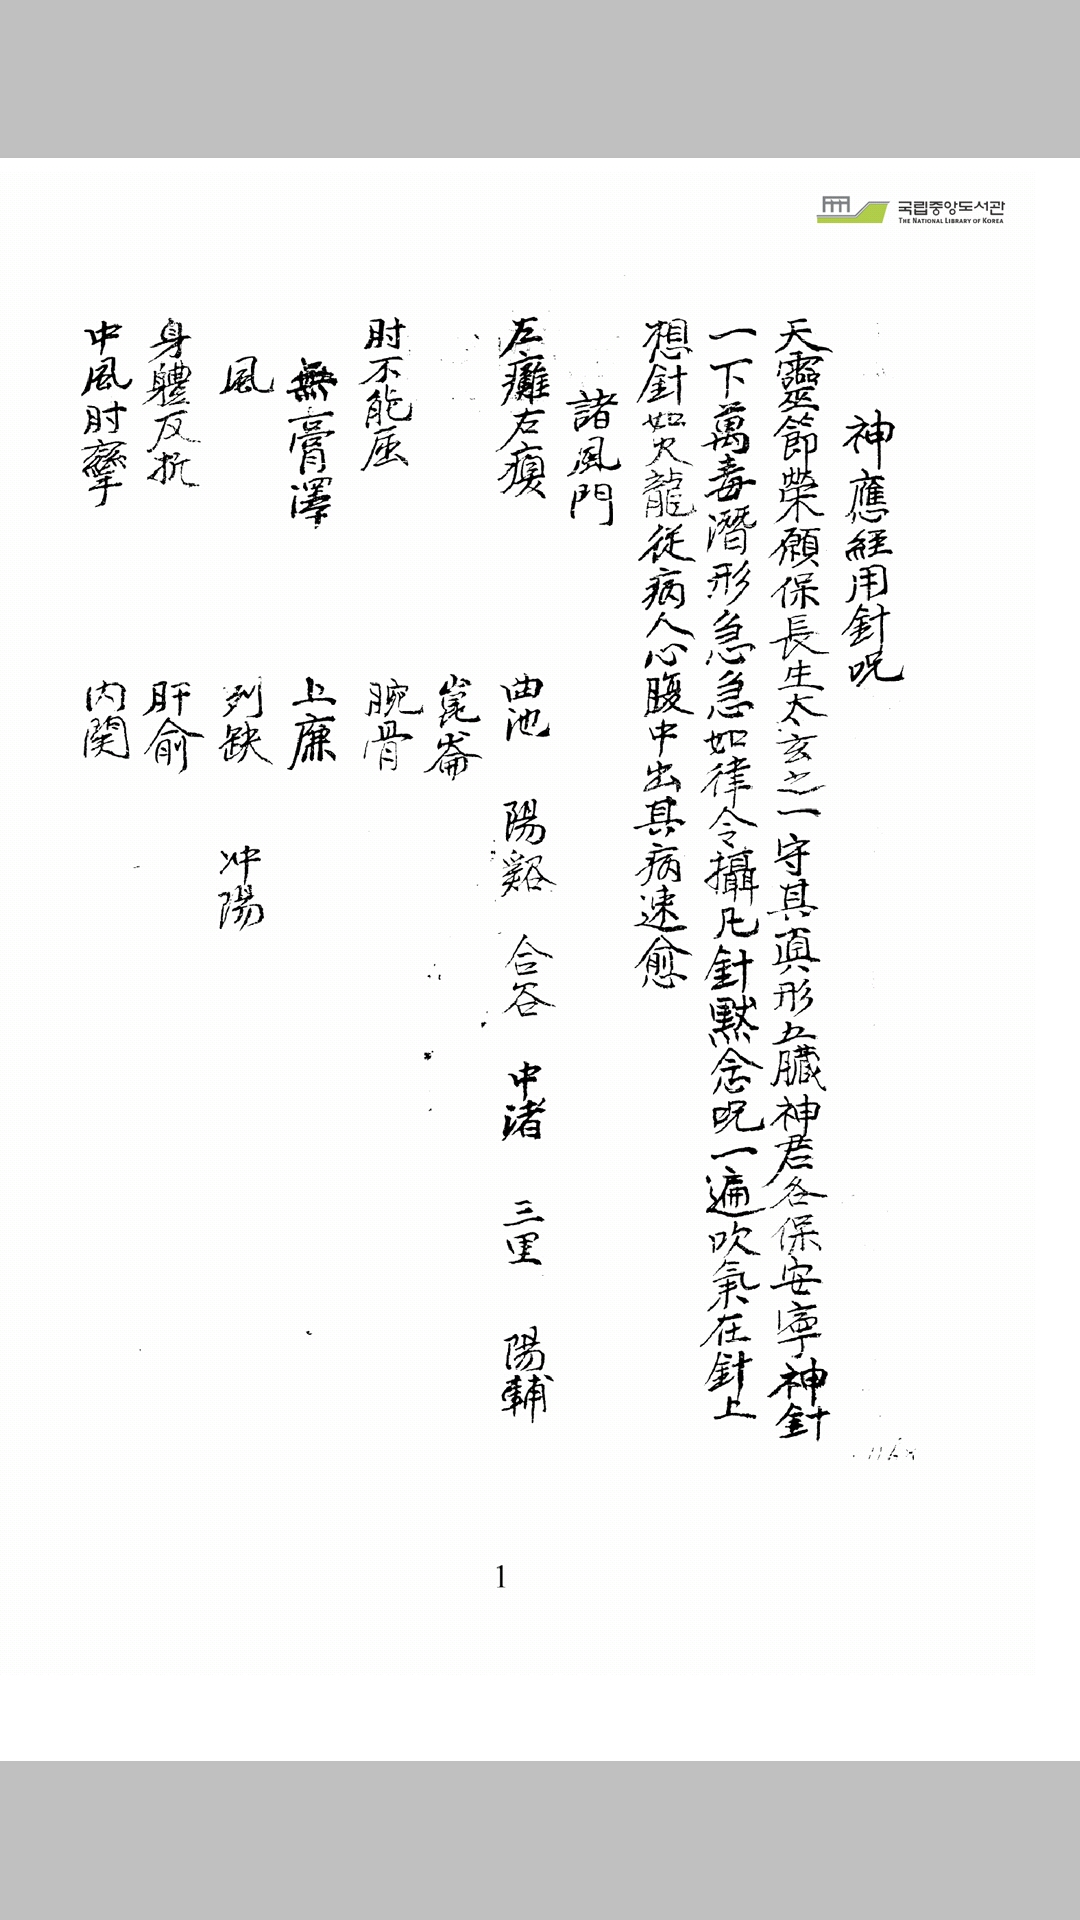 국립중앙도서관
THE NATIONAL LIBRARY OF KOREA
神應經用針呪
天靈節榮願保長生太玄之一守其眞形五臟神君各保安寧神針
一下萬毒潛形急急如律令攝凡針黙念呪一遍吹氣在針上
想針如火龍從病人心腹中出其病速愈
諸風門
左癱右瘓 曲池 陽谿 合谷 中渚 三里 陽輔
崑崙
肘不能屈 腕骨
無膏澤 上廉
風 列缺 冲陽
身體反折 肝俞
中風肘攣 内関
1